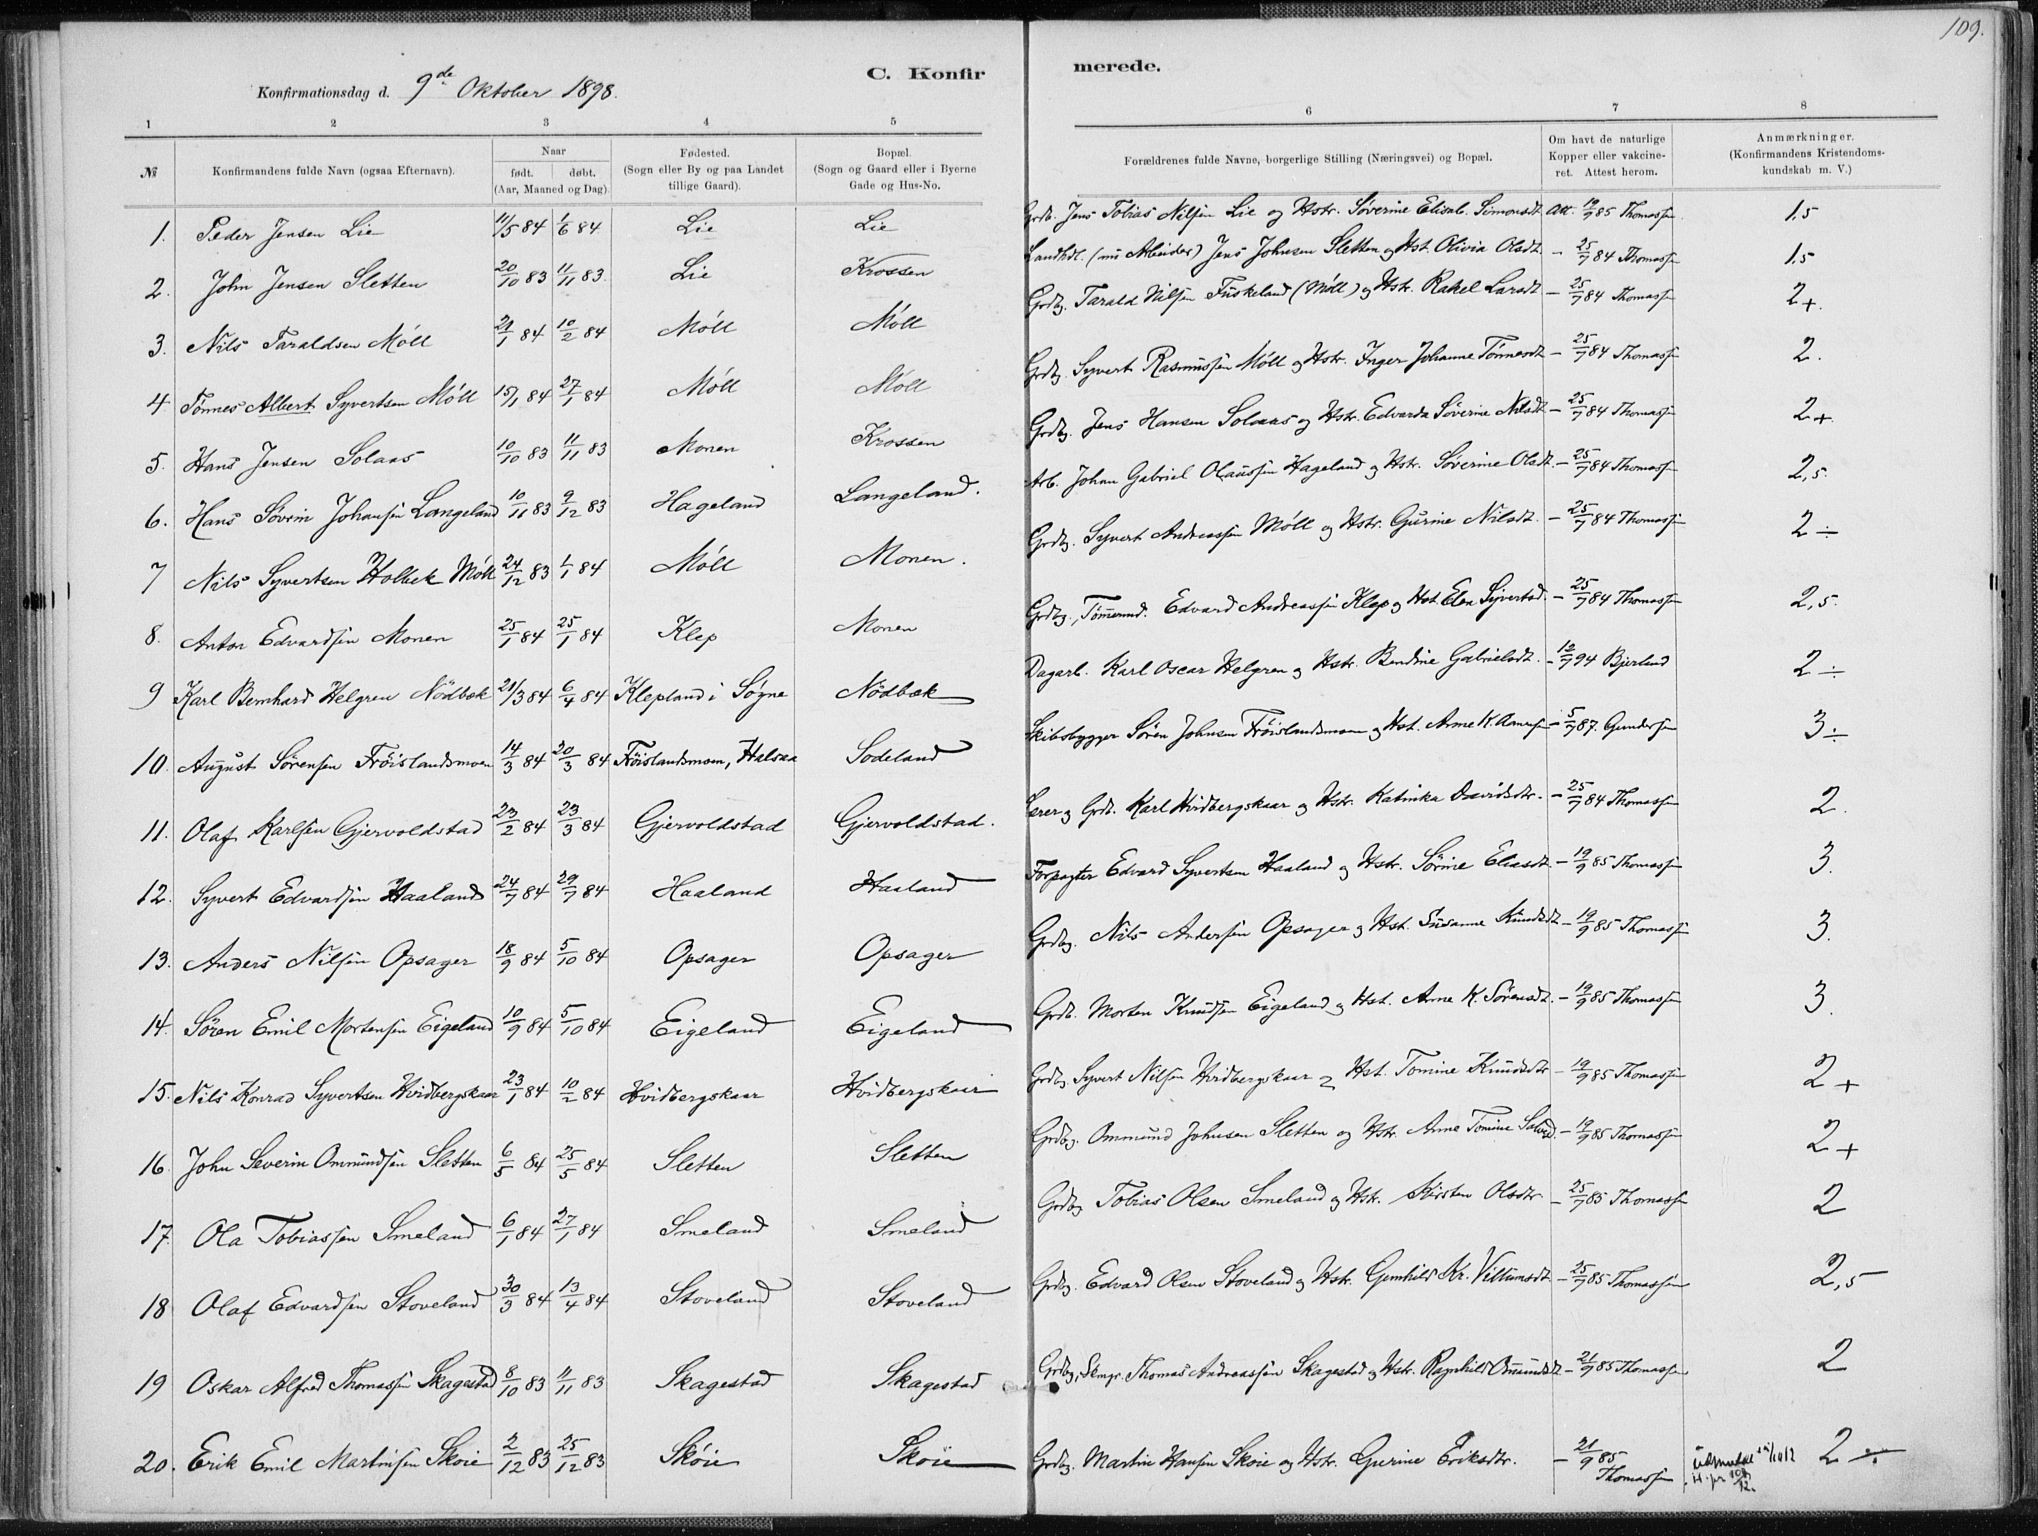 109.
C. Konfirmerede.
Konfirmationsdag d. 9de Oktober 1898.
1 2 3 4 5 6 7 8
№ Konfirmandens fulde Navn (ogsaa Efternavn). Naar født. døbt. (Aar, Maaned og Dag). Fødested. (Sogn eller By og paa Landet tillige Gaard). Bopæl. (Sogn og Gaard eller i Byerne Gade og Hus-No. Forældrenes fulde Navne, borgerlige Stilling (Næringsvei) og Bopæl. Om havt de naturlige Kopper eller vakcineret. Attest herom. Anmærkninger. (Konfirmandens Kristendomskundskab m. V.)
1. Peder Jensen Lie 11/5 84 1/6 84 Lie Lie Grdb. Jens Tobias Nilsen Lie og Hstr. Søverine Elisab. Simonsdt. Att. 19/9 85 Thomassen 1,5
2. John Jensen Sletten 20/10 83 11/11 83. Lie Krossen Landhdl. (nu Arbeider) Jens Johnsen Sletten og Hst. Olivia Olsdt. - 25/7 84 Thomassen 1,5
3. Nils Taraldsen Möll 21/1 84 10/2 84 Möll Möll Grdbg. Tarald Nilsen Fuskeland (Möll) og Hstr. Rakel Larsdt - 25/7 84 Thomassen 2+.
4 Tönnes Albert Syvertsen Möll 15/1 84 27/1 84 Möll Möll Grdbg. Syvert Rasmussen Möll og Hstr. Inger Johanne Tönnesdt - 25/7 84 Thomassen 2.
5. Hans Jensen Solaas 10/10 83 11/11 83 Monen Krossen Grdbg. Jens Hansen Solaas og Hstr. Edvarda Söverine Nilsdt - 25/7 84 Thomassen 2+
6. Hans Sövrin Johansen Langeland 10/11 83 9/12 83 Hageland Langeland. Arb. Johan Gabriel Olaussen Hageland og Hstr. Söverine Olsdt. - 25/7 84 Thomassen 2,5.
7 Nils Syvertsen Holbek Möll 24/12 83 1/1 84 Möll Monen. Grdbg. Syvert Andreassen Möll og Hstr. Gurine Nilsdt. - 25/7 84 Thomassen 2÷
8. Anton Edvardsen Monen 25/1 84 25/1 84 Klep Monen Grdbg., Tömmermd. Edvard Andreassen Klep og Hst. Elen Syvertsd. - 25/7 84 Thomassen 2,5.
9 Karl Bernhard Helgren Nödbæk 21/3 84 6/4 84 Klepland i Søgne Nödbæk Dagarb. Karl Oscar Helgren og Hstr. Bendine Gabrielsdt. - 12/7 94 Bjerland 2÷
10. August Sörensen Fröislandsmoen 14/3 84 20/3 84 Fröislandsmoen, Halsaa Sodeland Skibsbygger Sören Johnsen Fröislandsmoen og Hst. Anne K. - 5/7 87. Gundersen 3÷
11. Olaf Karlsen Gjervoldstad 23/2 84 23/3 84 Gjervoldstad Gjervoldstad. Lærer og Grdb. Karl Hvidbergskaar og Hstr. Katinka Davidsdtr. - 25/7 84 Thomassen 2.
12. Syvert Edvardsen Haaland 24/7 84 29/7 84 Haaland Haaland Forpagter Edvard Syvertsen Haaland og Hstr. Sörine Eliasdt - 19/9 85 Thomassen 3.
13. Anders Nilsen Opsager 18/9 84 5/10 84 Opsager Opsager Grdbg. Nils Andersen Opsager og Hst. Susanne Knudsdt - 19/9 85 Thomassen 3.
14. Sören Emil Mortensen Eigeland 10/9 84 5/10 84 Eigeland Eigeland Grdb. Morten Knudsen Eigeland og Hst. Anne K. Sörensdt. - 19/9 85 Thomassen 3.
15. Nils Konrad Syvertsen Hvidbergskaar 23/1 84 10/2 84 Hvidbergskaar Hvidbergskaar Grdbg Syvert Nilsen Hvidbergskaar og Hst. Tomine Knudsdtr - 19/9 85 Thomassen 2+
16. John Severin Ommundsen Sletten 6/5 84 25/5 84 Sletten Sletten Grdbg. Ommund Johnsen Sletten og Hstr. Anne Tomine - 19/9 85 Thomassen 2+
17. Ola Tobiassen Smeland 6/1 84 27/1 84 Smeland Smeland Grdbg Tobias Olsen Smeland og Hstr. Kirsten Olsdtr - 25/7 85 Thomassen 2
18 Olaf Edvardsen Stoveland 30/3 84 13/4 84 Stoveland Stoveland Grdbg. Edvard Olsen Stoveland og Hstr. Gunhild Kr. Villumsdt - 25/7 85 Thomassen 2,5
19 Oskar Alfred Thomassen Skagestad 8/10 83 11/11 83 Skagestad Skagestad Grdbg, Thomas Andreassen Skagestad og Hstr. Ragnhild Ommundsdt - 21/9 85 Thomassen 2
20. Erik Emil Martinsen Skoie 2/12 83 25/12 83 Skóie Skoie Grdbg. Martin Hansen Skoie og Hstr. Gurine Eriksdtr. - 21/9 85 Thomassen 2÷